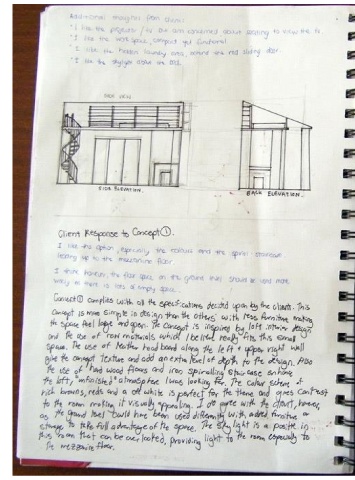 Additional thoughts from clients:
* I like the projector / tv but am concerned about needing to view the tv.
* I like the workspace, compact yet functional.
* I like the hidden laundry area, behind the red sliding door.
* I like the skylight above the bed.
SIDE ELEVATION.
BACK ELEVATION.
Client Response to Concept ①.
I like this option, especially the colours and the spiral staircase
leading up to the mezzanine floor.
I think however, the floor space on the ground level should be used more
there is lots of empty space.
Concept ① complies with all the specifications decided upon by the clients. This
concept is more simple in design than the others with less furniture making
the space feel larger and open. The concept is inspired by loft interior design
and the use of raw materials which I believe really fits this small
space. The use of feather head board along the left & upper right wall
give the concept texture and add an extra level of depth to the design. Also
the use of hard wood floors and iron spiralling staircase enhance
the lofty "unfinished" atmosphere I was looking for. The colour scheme of
rich browns, reds and a off white is perfect for the theme and gives contrast
to the room making it visually appealing. I do agree with the client, however,
as the ground level could have been used differently with added furniture or
storage to take full advantage of the space. The sky light is a positive in
this room that can be overlooked, providing light to the room especially to
the mezzanine floor.